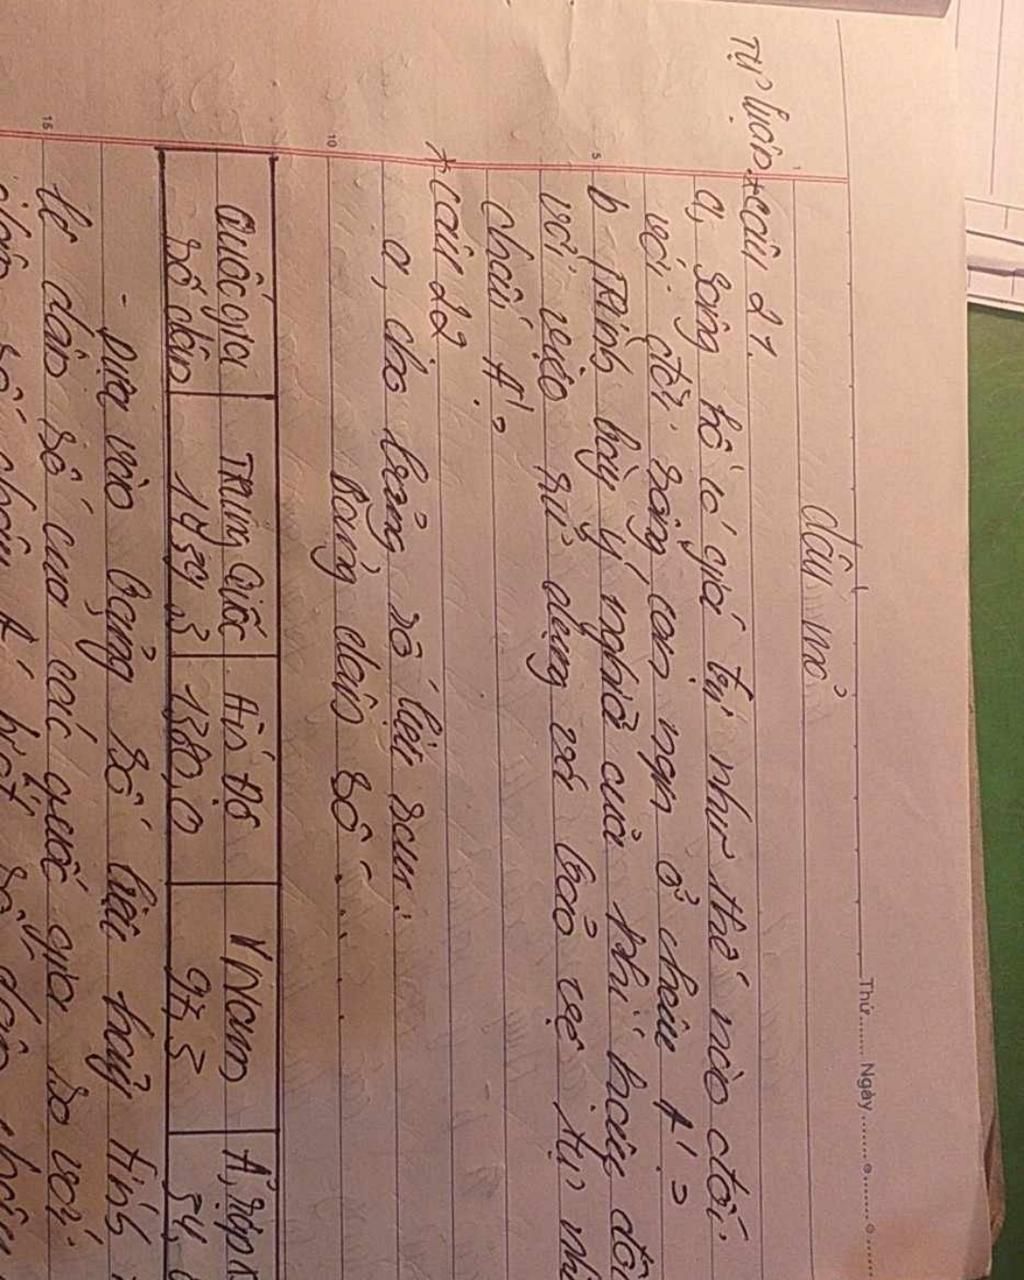 Thứ......... Ngày.........
dầu mỏ
Tự luận * câu 21.
a, sông hồ có giá trị như thế nào đối
với đời sống con người ở châu Á?
b trình bày ý nghĩa của khí hậu đối
với việc sử dụng và bảo vệ tự nhi
châu Á?
* câu 22
a, cho bảng số liệu sau:
Bảng dân số
Quốc gia Trung Quốc Ấn Độ V Nam Ả rập
số dân 1439,3 1380,0 97,3 34,
- Dựa vào bảng số liệu hãy tính
lệ dân số của các quốc gia so với
1
5
10
15